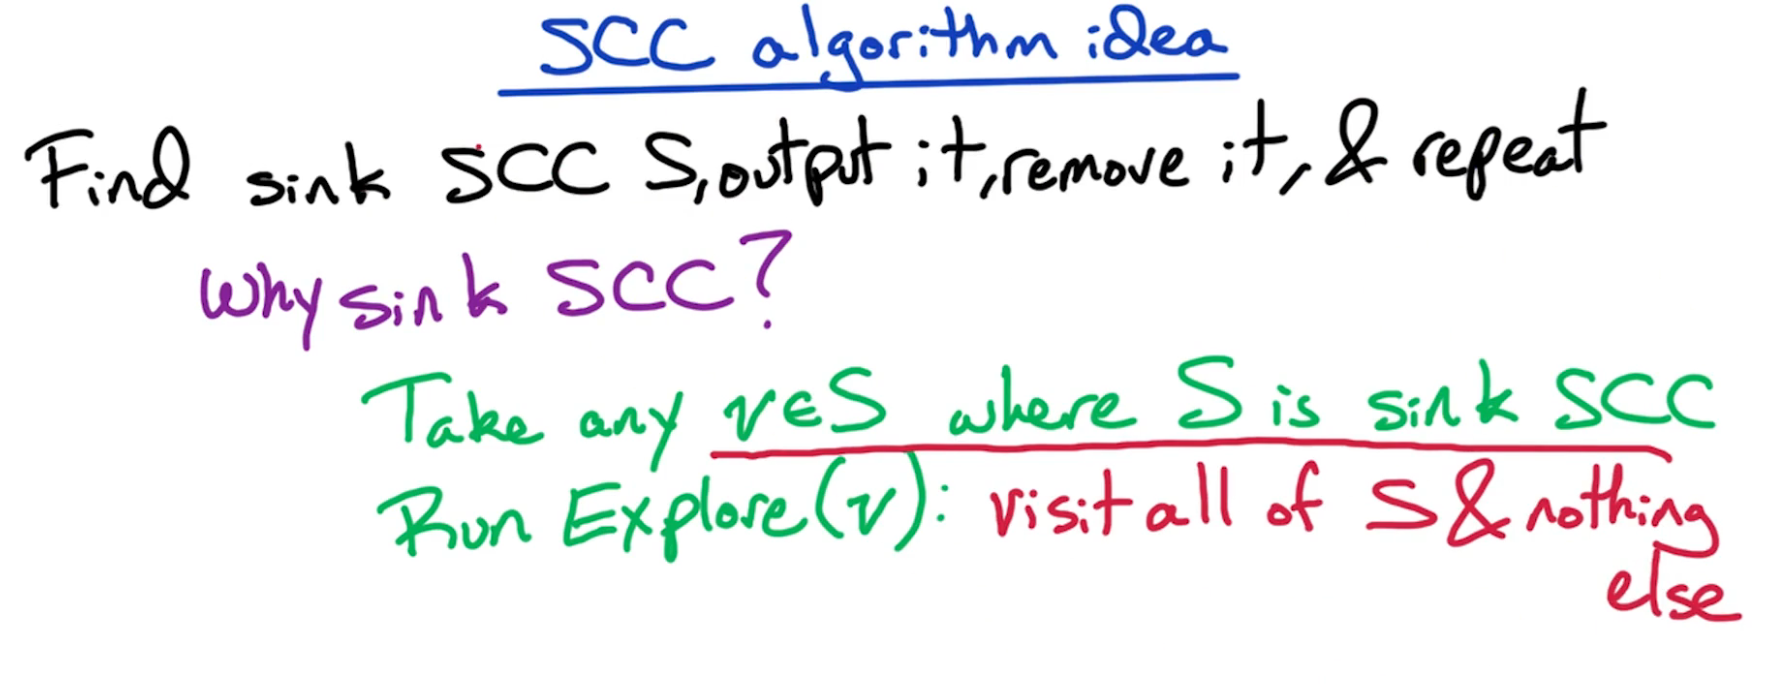 SCC algorithm idea
Find sink SCC S, output it, remove it, & repeat
Why sink SCC?
Take any v∈S where S is sink SCC
Run Explore(v): visit all of S & nothing
else